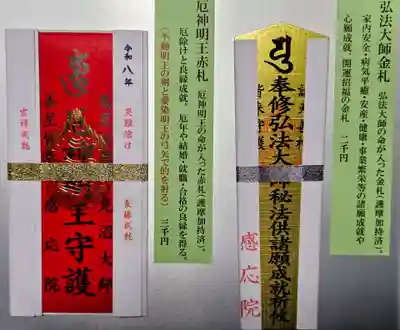 弘法大師金札
弘法大師の命が入った金札(護摩加持済)。
家内安全・病気平癒・安産・健康・事業繁栄等の諸願成就や
心願成就、開運招福の金札 二千円
奉修弘法大師秘法供諸願成就祈攸
感応院
厄神明王赤札
厄神明王の命が入った赤札(護摩加持済)。
厄除けと良縁成就。厄年や結婚・就職・合格の良縁を得る。
(不動明王の剣と愛染明王の弓矢で的を射る) 三千円
令和八年
災難除け
良縁成就
王守護
感應院